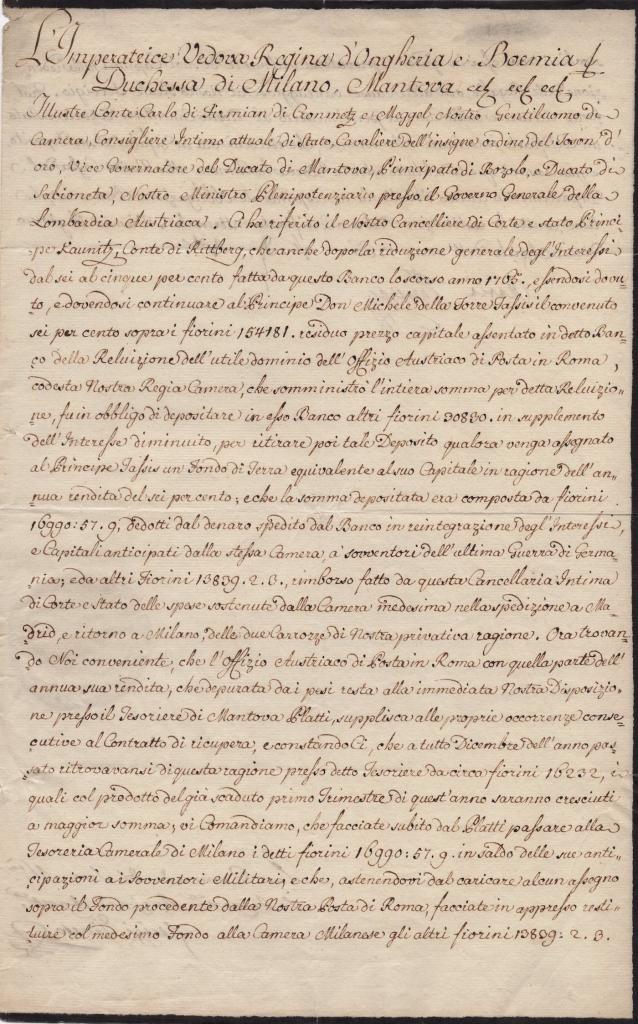 L'Imperatrice Vedova Regina d'Ongheria e Boemia &
Duchessa di Milano, Mantova &c &c &c
Illustre Conte Carlo di Firmian di Cronmetz e Meggel, Nostro Gentiluomo di
Camera, Consigliere Intimo attuale di Stato, Cavaliere dell'insigne ordine del Toson' d'
oro, Vice Governatore del Ducato di Mantova, Principato di Bozolo, e Ducato di
Sabioneta, Nostro Ministro Plenipotenziario presso il Governo Generale della
Lombardia Austriaca. Ci ha riferito il Nostro Cancelliere di Corte e stato Princi-
pe Kaunitz, Conte di Rittberg, che anche dopo la riduzione generale degl'Interessi
dal sei al cinque per cento fatta da questo Banco lo scorso anno 1765., essendosi dovu-
to, e dovendosi continuare al Principe Don Michele della Torre Tassis il convenuto
sei per cento sopra i fiorini 154181. residuo prezzo capitale assentato in detto Ban-
co della Reluizione dell'utile dominio dell'Offizio Austriaco di Posta in Roma,
codesta Nostra Regia Camera, che somministrò l'intiera somma per detta Reluizio-
ne, fu in obbligo di depositare in esso Banco altri fiorini 30830. in supplemento
dell'Interesse diminuito, per ritirare poi tale Deposito qualora venga assegnato
al Principe Tassis un Fondo di Terra equivalente al suo Capitale in ragione dell'an-
nua rendita del sei per cento; e che la somma depositata era composta da fiorini
16990:57.9. dedotti dal denaro spedito dal Banco in reintegrazione degl'Interessi,
e Capitali anticipati dalla stessa Camera, a' sovventori dell'ultima Guerra di Germa-
nia; e da altri Fiorini 13839.2.3., rimborso fatto da questa Cancellaria Intima
di Corte e Stato delle spese sostenute dalla Camera medesima nella spedizione a Ma-
drid, e ritorno a Milano, delle due Carrozze di Nostra privativa ragione. Ora trovan-
do Noi conveniente, che l'Offizio Austriaco di Posta in Roma con quella parte dell'
annua sua rendita, che depurata da i pesi resta alla immediata Nostra Disposizio-
ne presso il Tesoriere di Mantova Platti, supplisca alle proprie occorrenze conse-
cutive al Contratto di ricupera, e constando Ci, che a tutto Dicembre dell'anno pas-
sato ritrovavansi di questa ragione presso detto Tesoriere da circa fiorini 16232, i
quali col prodotto del già scaduto primo Trimestre di quest'anno saranno cresciuti
a maggior somma; vi Comandiamo, che facciate subito dal Platti passare alla
Tesoreria Camerale di Milano i detti fiorini 16990:57.9. in saldo delle sue anti-
cipazioni a i Sovventori Militari; e che, astenendovi dal caricare alcun assegno
sopra il Fondo procedente dalla Nostra Posta di Roma, facciate in appresso resti-
tuire col medesimo Fondo alla Camera Milanese gli altri fiorini 13839:2.3.